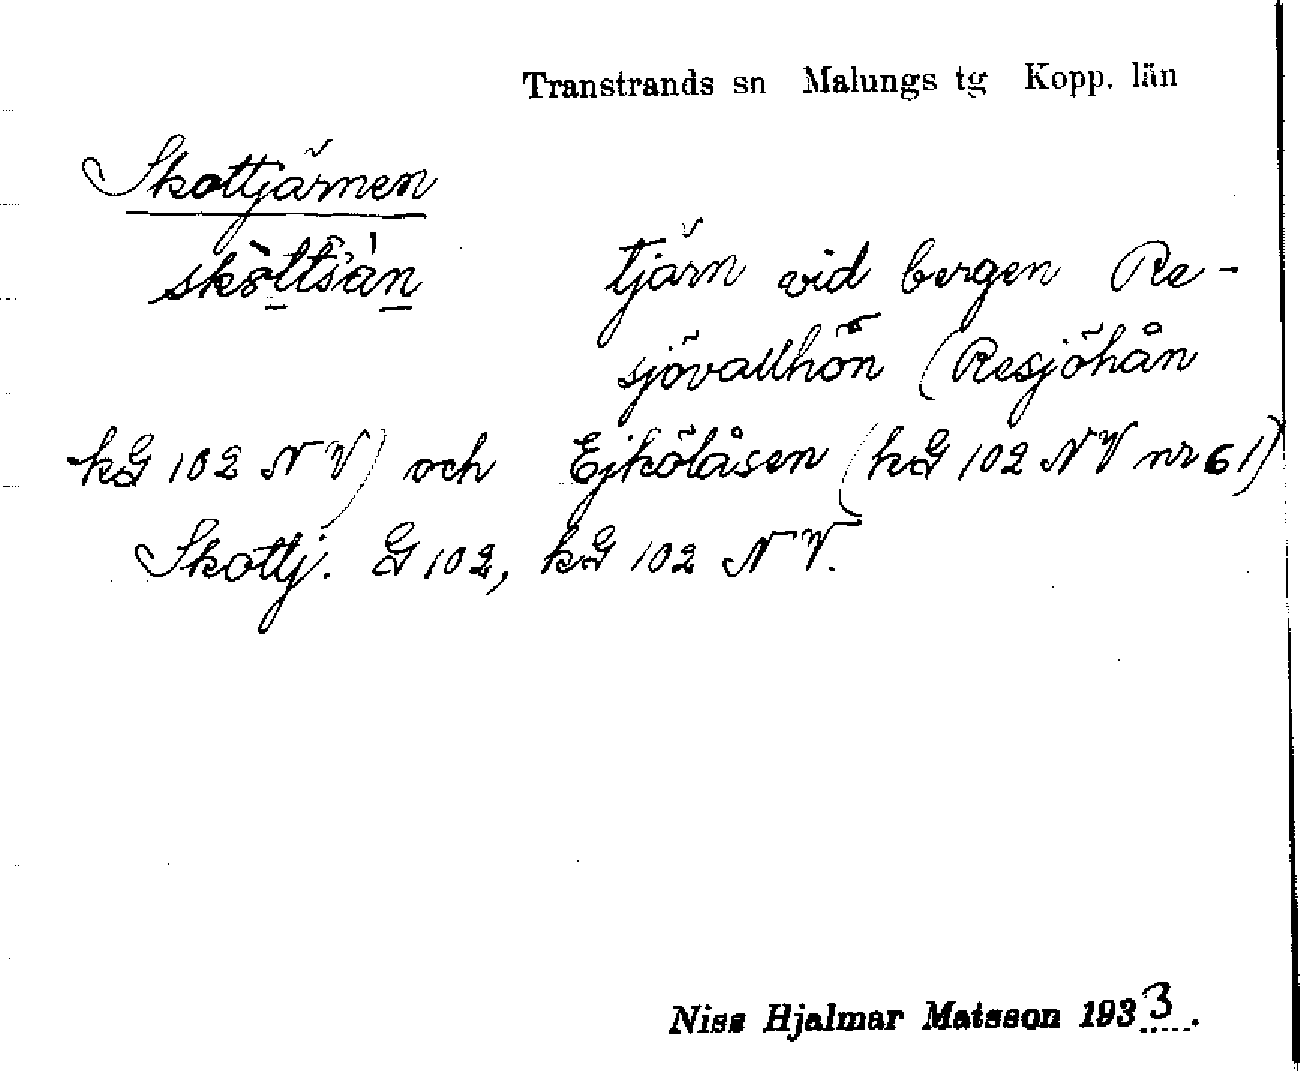 Transtrands sn Malungs tg Kopp. län
Skottjärnen
tjärn vid bergen Re-
sjövallhön (Resjöhån
kG 102 NV) och Ejkölåsen (kG 102 NV nr 61)
Skottj. G 102, kG 102 NV.
Niss Hjalmar Matsson 1933.